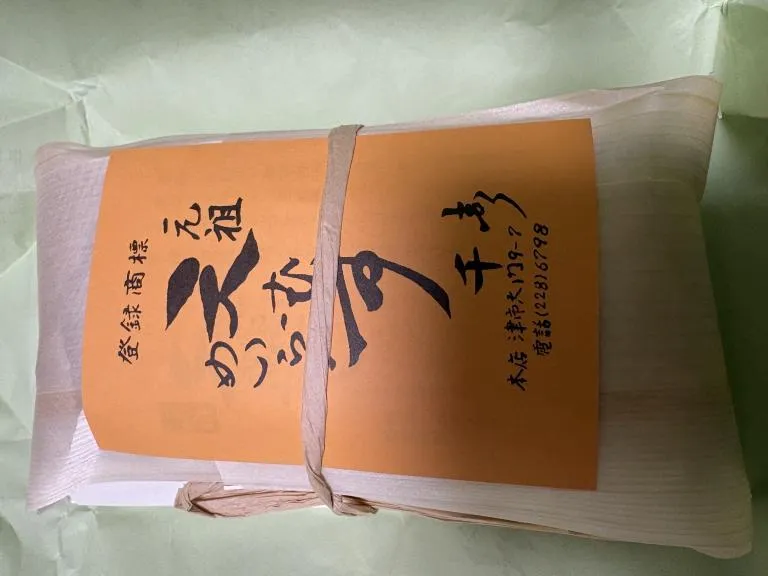 登録商標
元祖
天むす
千寿
本店 津市大門9-7
電話(228)6798